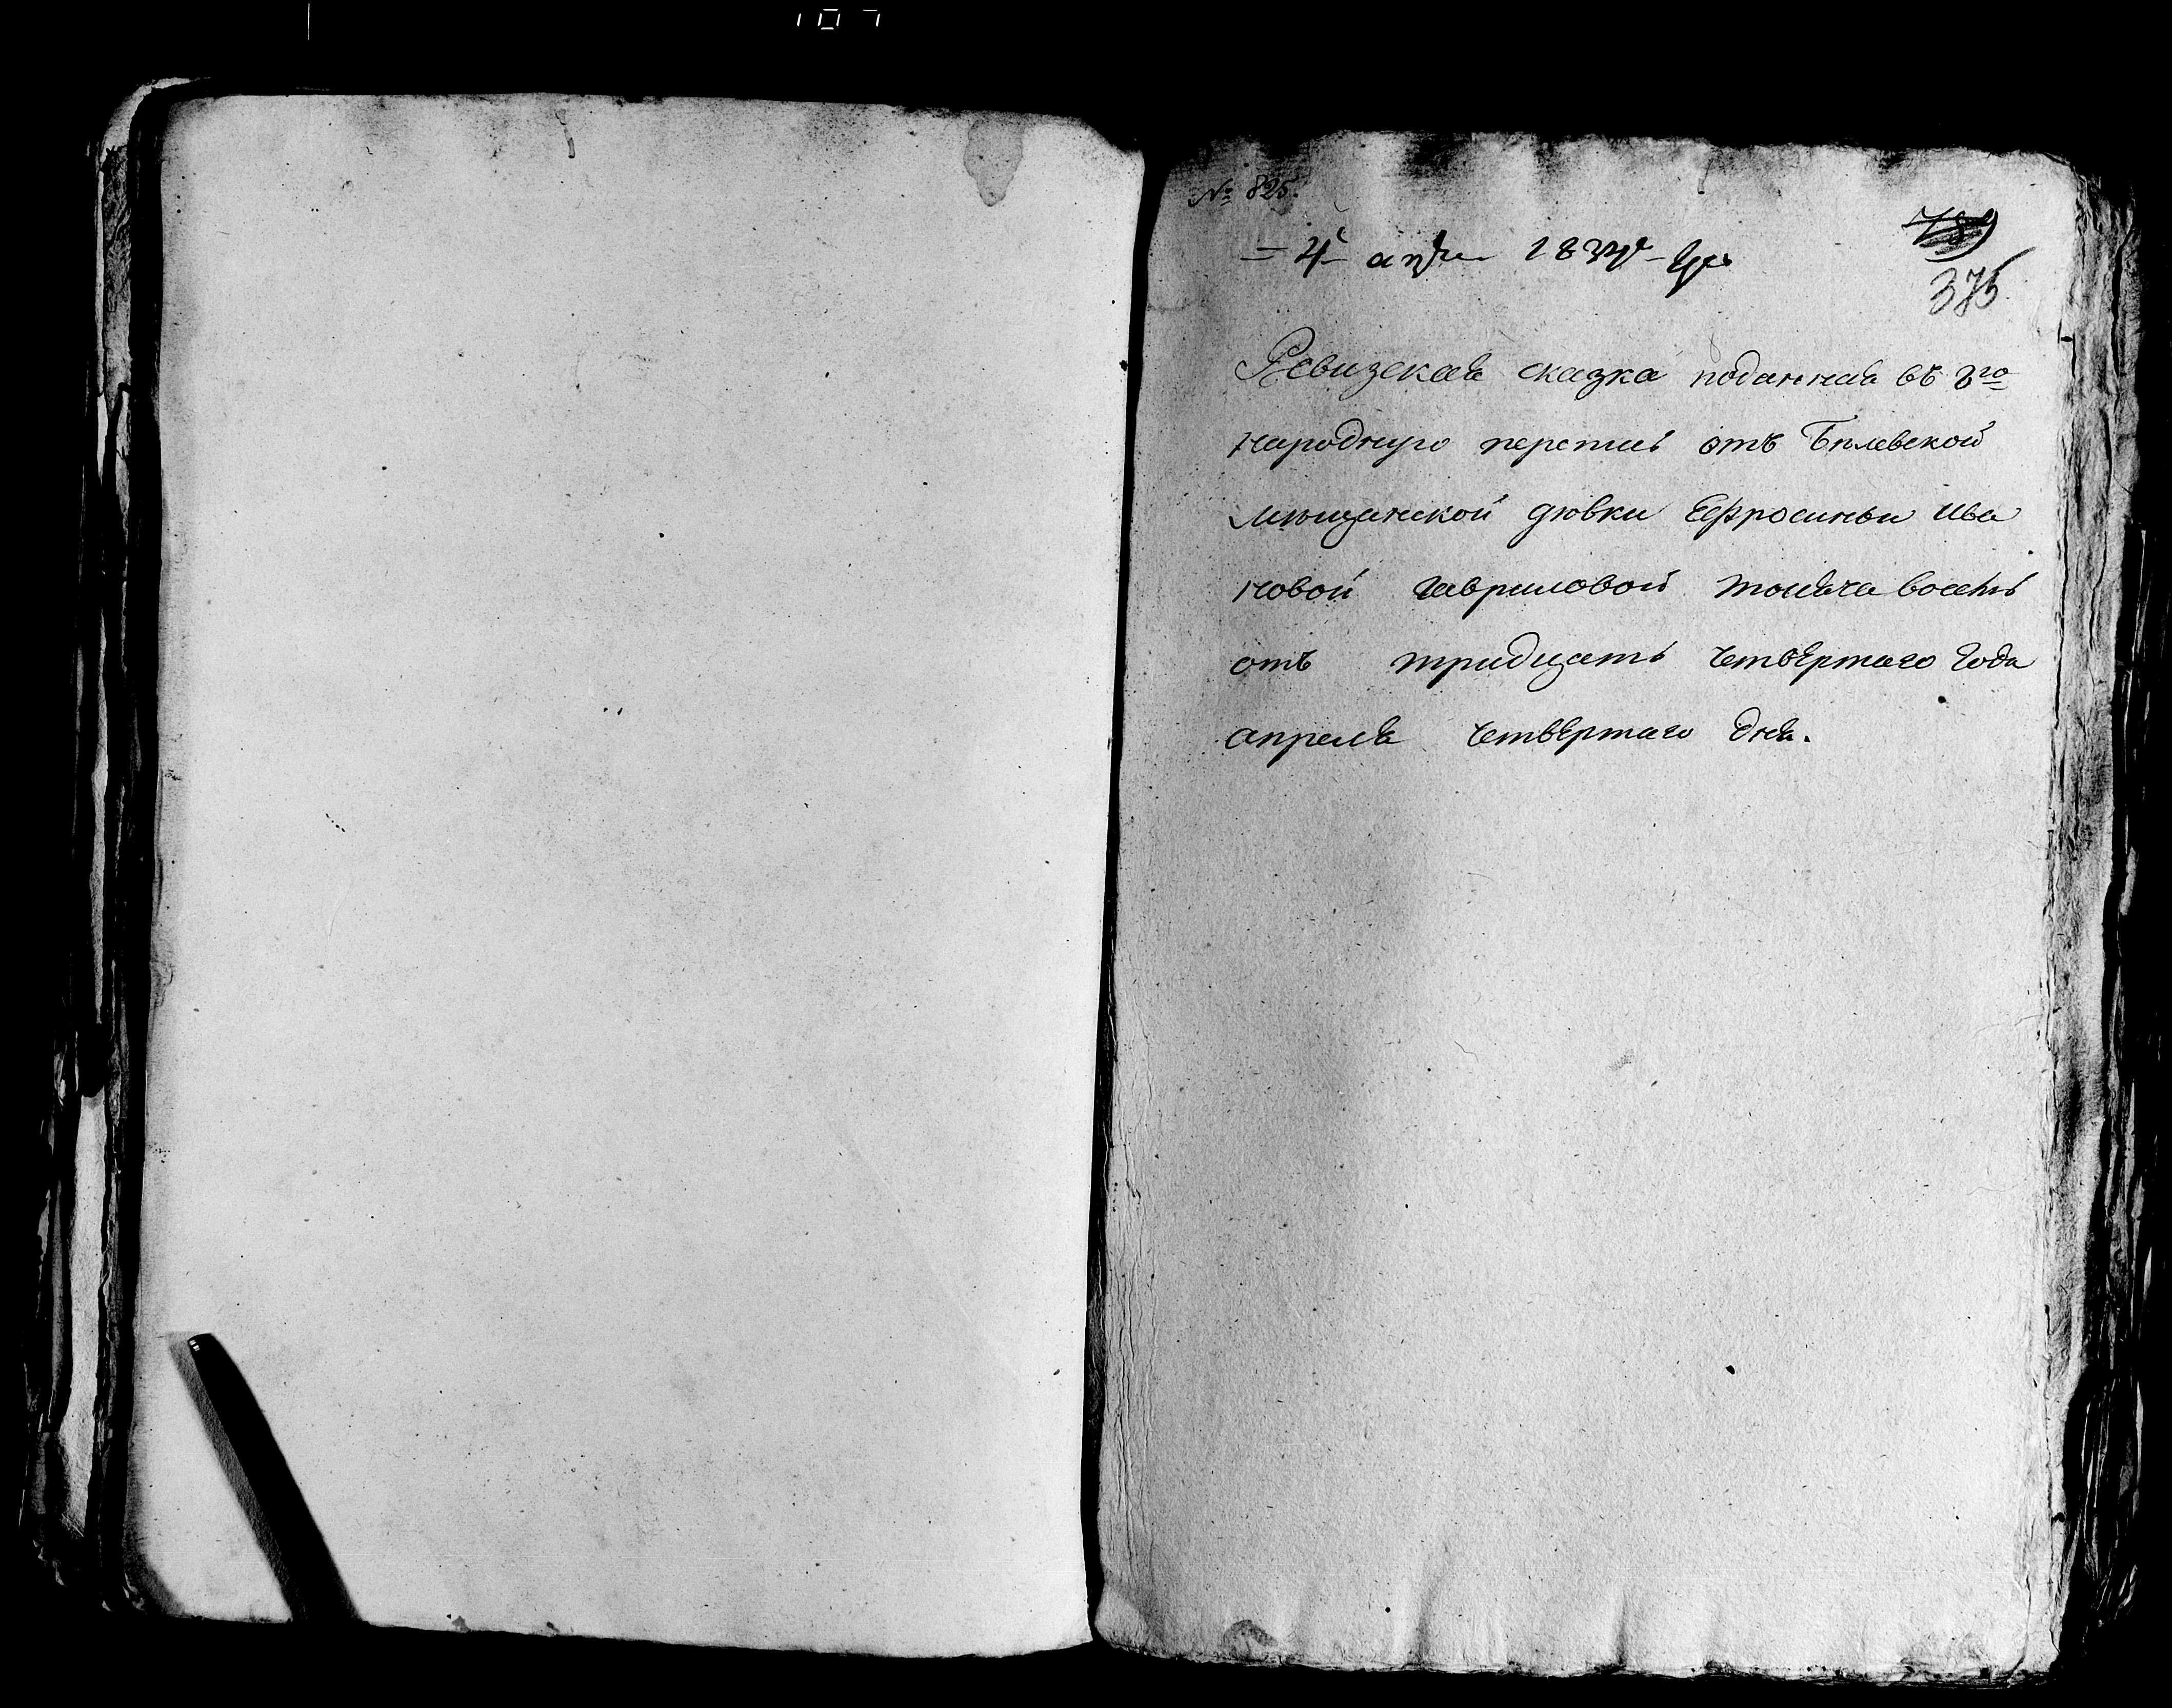 107
№ 825.
= 4 апре 1834
789
375
Ревизская сказка поданная въ 8ю
народную перепись отъ Белевской
мещанской девки Ефросиньи Ива
новой Гавриловой тысяча восемь
отъ тридцать четвертаго года
апреля четвертаго дня.